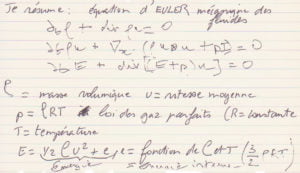 Je résume : équation d'EULER mécanique des fluides
∂tρ + div ρu = 0
∂tρu + ∇x · (ρu⊗u + pI) = 0
∂tE + div[(E+p)u] = 0
ρ = masse volumique u = vitesse moyenne
p = ρRT loi des gaz parfaits (R = constante
T = température
E = 1/2 ρu² + e, e = fonction de ρ et T (3/2 ρRT)
Energie = énergie interne